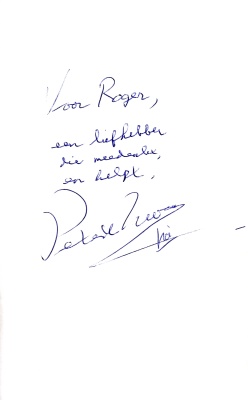 Voor Roger,
een liefhebber
die meedenkt,
en helpt.